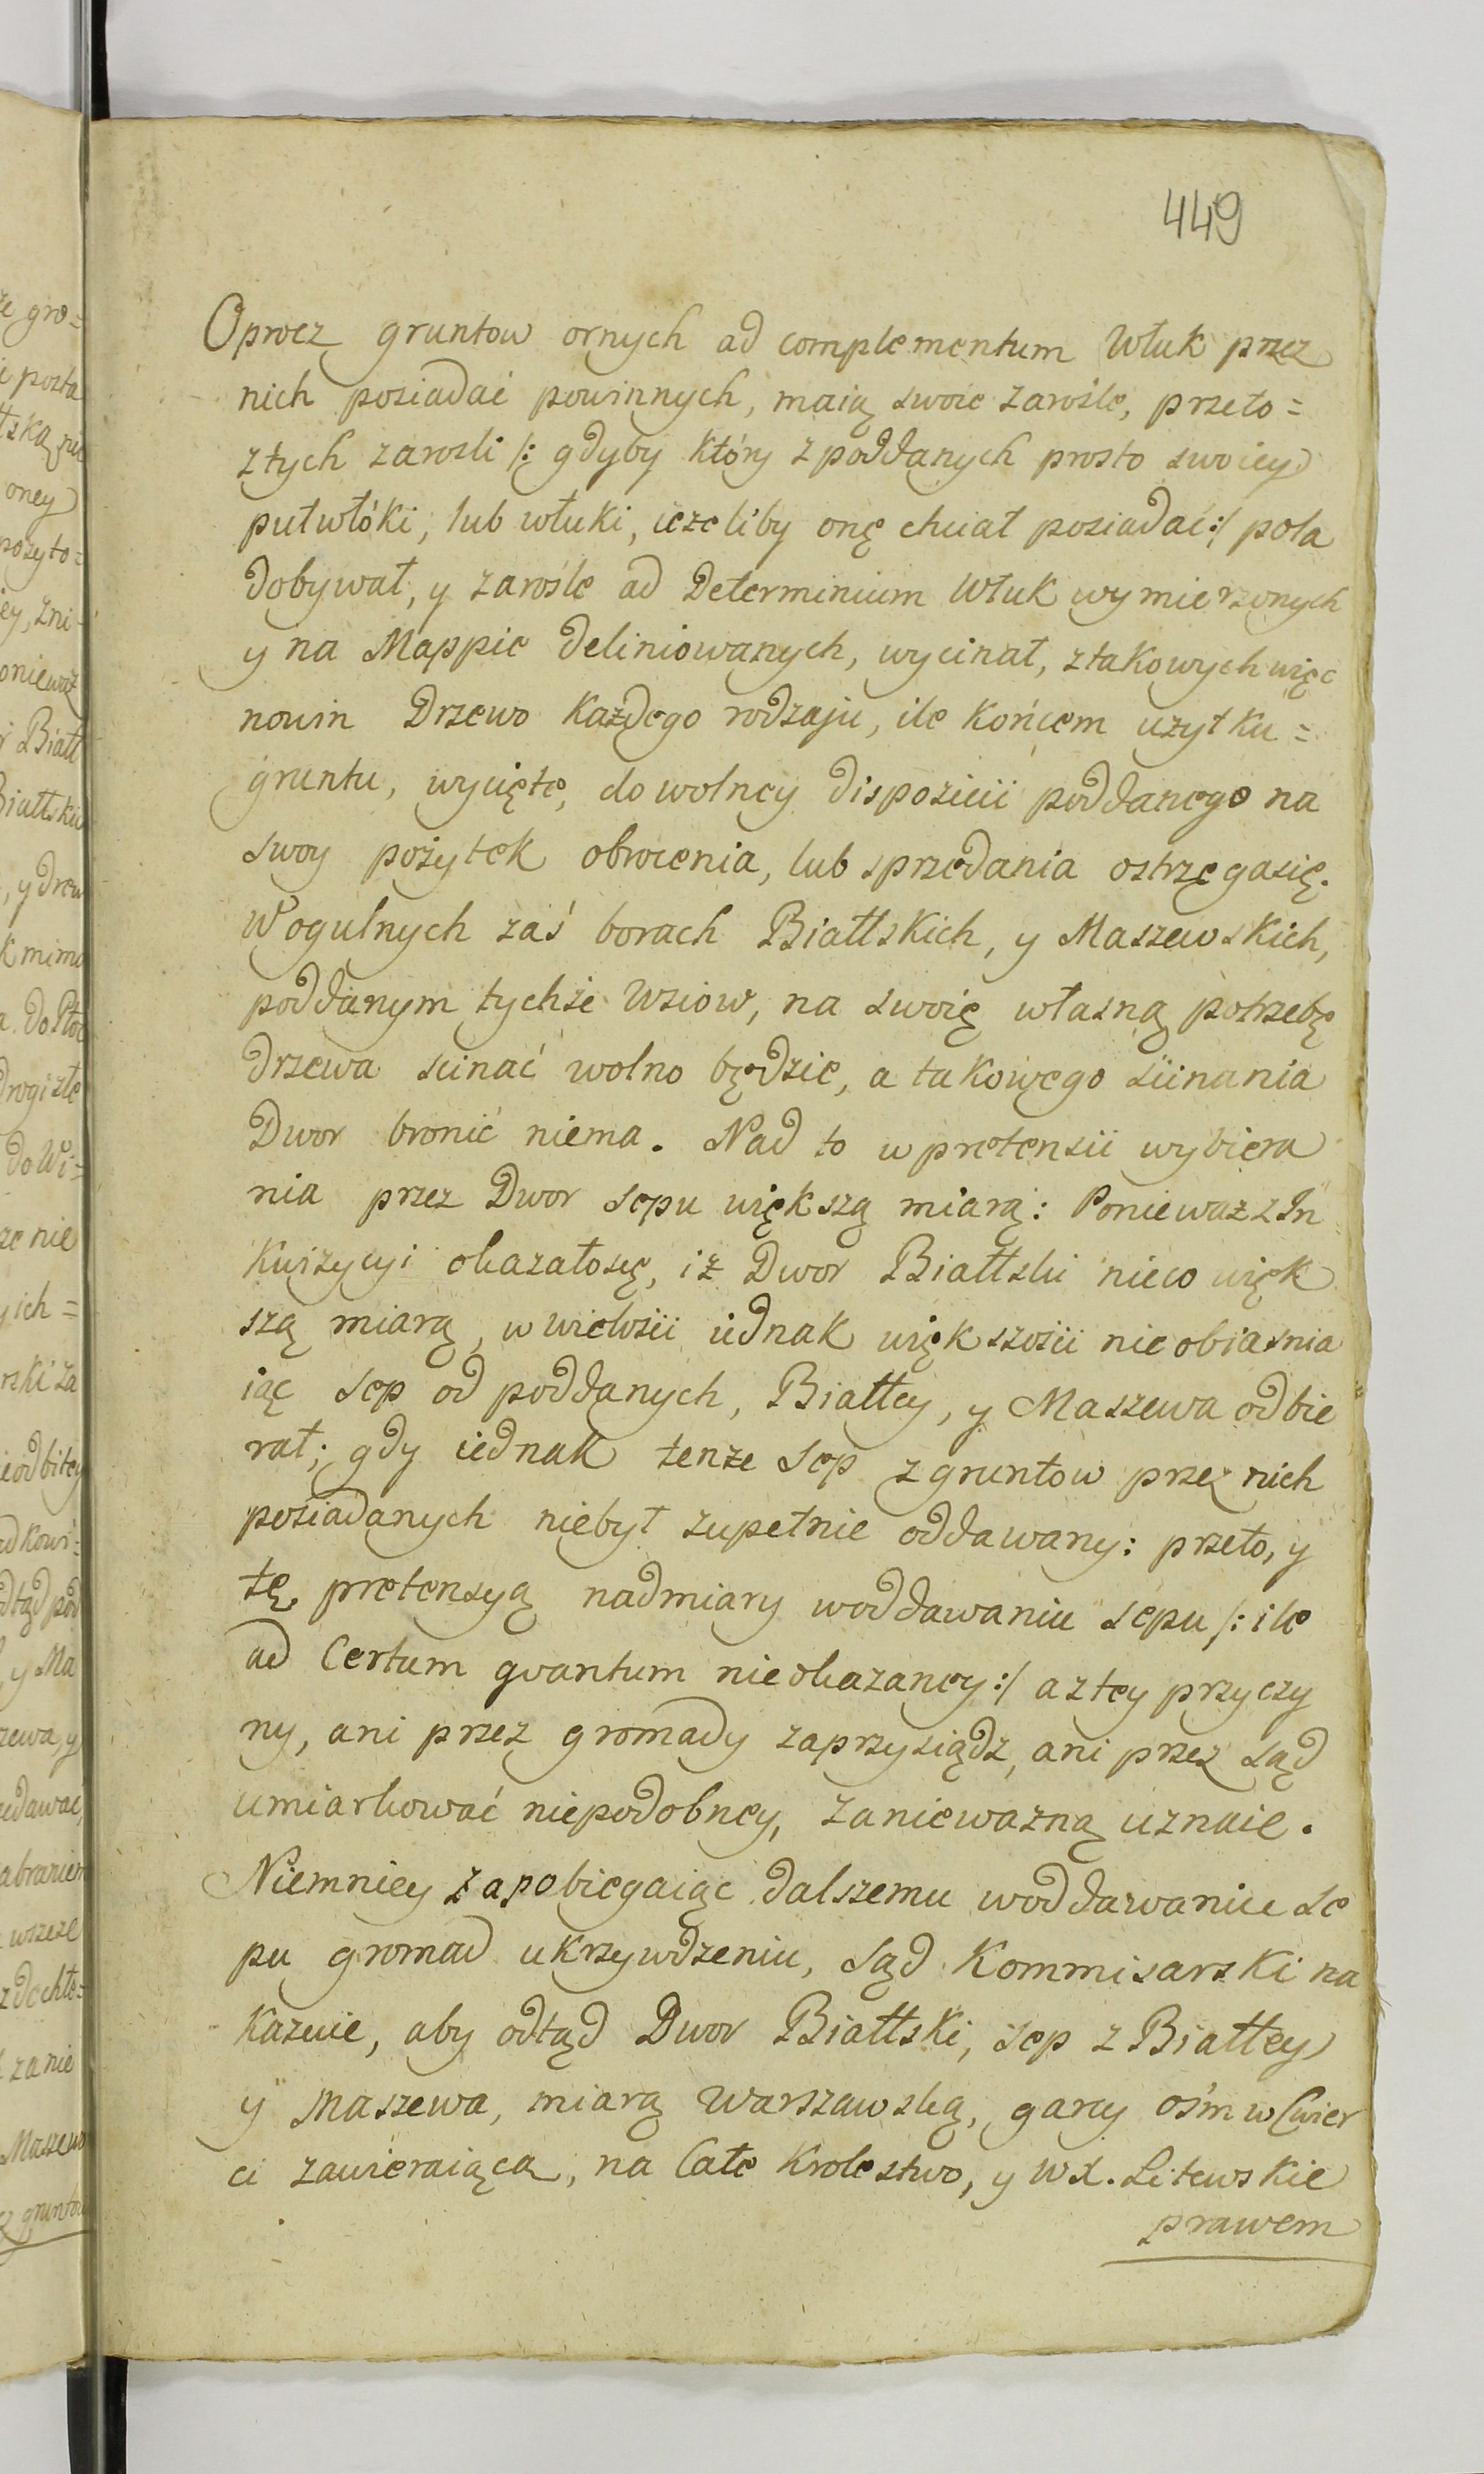 449
Oprocz gruntow ornych ad complementum Włuk przez
nich posiadać powinnych, maią swoie zarośle, przeto =
ztych zarosli /: gdyby który z poddanych prosto swoiey
pułwłóki, lub włuki, ieżeliby onę chciał posiadać :/ pola
dobywał, y zarośle ad Determinium Włuk wymierzonych
y na Mappie deliniowanych, wycinał, ztakowych więc
nowin Drzewo każdego rodzaju, ile końcem uzytku =
gruntu, wycięte, do wolney dispozicii poddanego na
swoy pożytek obrocenia, lub sprzedania ostrzegasię.
W ogulnych zaś borach Biattskich, y Maszewskich,
poddanym tychże Wsiow, na swoię własną potrzebę
drzewa scinać wolno będzie, a takowego scinania
Dwor bronić niema. Nad to w pretensii wybiera
nia przez Dwor sepu większą miarą: Ponieważ z In
kwizycyi okazałosię, iż Dwor Biattski nieco więk
szą miarą, w wielosci iednak większosci nieobiasnia
iąc sep od poddanych, Białłey, y Maszewa odbie
rał; gdy iednak tenże sep z gruntow przez nich
posiadanych niebył zupełnie oddawany: przeto, y
tę pretensyą nadmiary woddawaniu sepu /: ile
ad Certum qvantum nieokazaney :/ aztey przyczy
ny, ani przez gromady zaprzysiądz, ani przez sąd
umiarkować niepodobney, zanieważną uznaie.
Niemniey zapobiegaiąc dalszemu woddawaniu se
pu gromad ukrzywdzeniu, sąd Kommisarski na
kazuie, aby odtąd Dwor Biattski, sep z Białłey
y Maszewa, miarą Warszawską, garcy ośm w Cwier
ci zawieraiącą, na Całe Krolestwo, y W.X. Litewskie
prawem